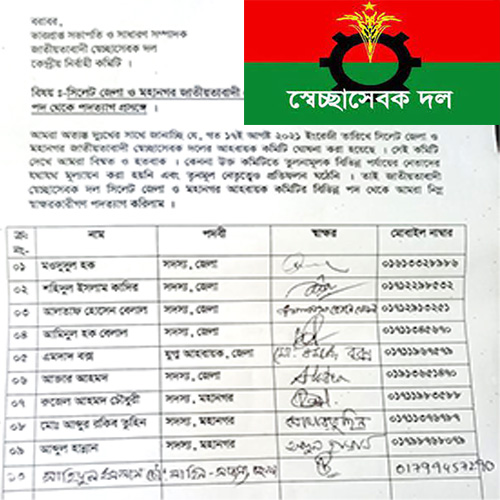 বরাবর,
ভারপ্রাপ্ত সভাপতি ও সাধারণ সম্পাদক
জাতীয়তাবাদী স্বেচ্ছাসেবক দল
কেন্দ্রীয় নির্বাহী কমিটি ।
স্বেচ্ছাসেবক দল
বিষয় ঃ-সিলেট জেলা ও মহানগর জাতীয়তাবাদী
পদ থেকে পদত্যাগ প্রসঙ্গে ।
আমরা অত্যন্ত দুঃখের সাথে জানাচ্ছি যে, গত ১৭ই আগষ্ট ২০২১ ইংরেজী তারিখে সিলেট জেলা ও
মহানগর জাতীয়তাবাদী স্বেচ্ছাসেবক দলের আহবায়ক কমিটি ঘোষনা করা হয়েছে । সেই কমিটি
দেখে আমরা বিস্মত ও হতবাক । কেননা উক্ত কমিটিতে তৃনমূলক বিভিন্ন পর্যায়ের নেতাদের
যথাযথ মূল্যায়ন করা হয়নি এবং তৃনমূল নেতৃত্বেও প্রতিফলন ঘটেনি । তাই জাতীয়তাবাদী
স্বেচ্ছাসেবক দল সিলেট জেলা ও মহানগর আহবায়ক কমিটির বিভিন্ন পদ থেকে আমরা নিম্ন
স্বাক্ষরকারীগণ পদত্যাগ করিলাম ।
ক্রঃ নং- নাম পদবী স্বাক্ষর মোবাইল নাম্বার
০১ মওদুদুল হক সদস্য, জেলা ০১৬১৩৩২৮৯৮৬
০২ শহিদুল ইসলাম কাদির সদস্য, জেলা ০১৭১২২৯৮৫৩২
০৩ আলতাফ হোসেন বেলাল সদস্য, জেলা ০১৭১২৯১৩২৫১
০৪ আমিনুল হক বেলাল সদস্য, জেলা ০১৭১১৩৪৫৬৭০
০৫ এমদাদ বক্স যুগ্ম আহবায়ক, জেলা মোঃ এমদাদ বক্স ০১৭১১৯৬৭৫৭৯
০৬ আক্তার আহমদ সদস্য, জেলা ০১৯১৩৬৫১৪৭০
০৭ রুজেল আহমদ চৌধুরী সদস্য, মহানগর ০১৭১১৯৮৩৫৮৮
০৮ মোঃ আব্দুর রকিব তুহিন সদস্য, মহানগর ০১৭১১৩৭৪৯৮৭
০৯ আব্দুল হান্নান সদস্য, মহানগর ০১৭৯৮৭৬৮০৭৯
১০ 01799457290